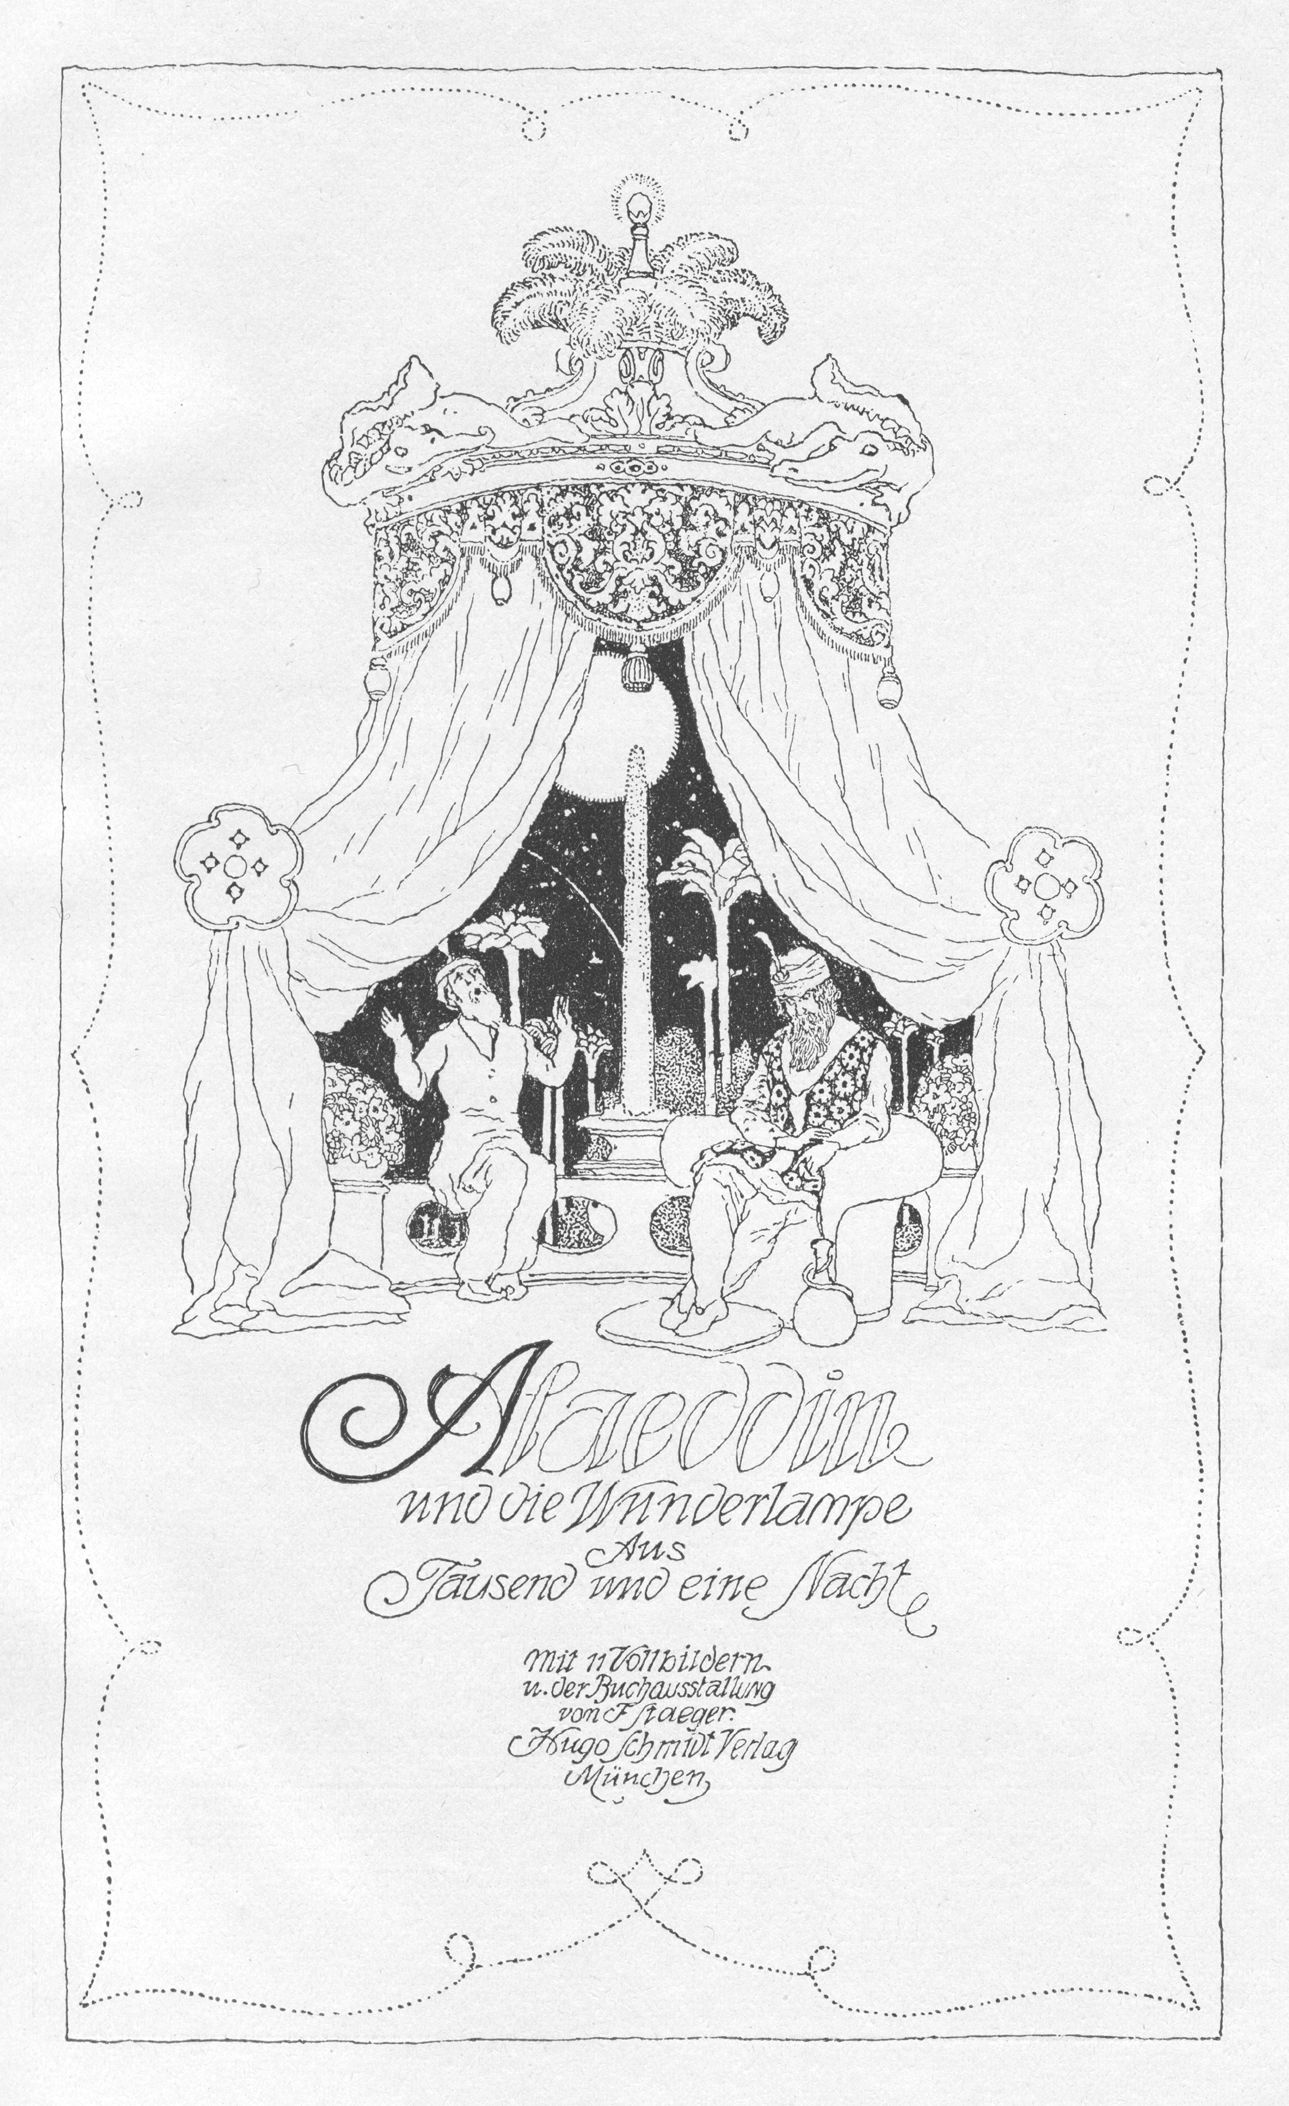 Alaeddin
und die Wunderlampe
Aus
Tausend und eine Nacht
Mit 11 Vollbildern
u. der Buchausstallung
von F Staeger.
Hugo Schmidt Verlag
München